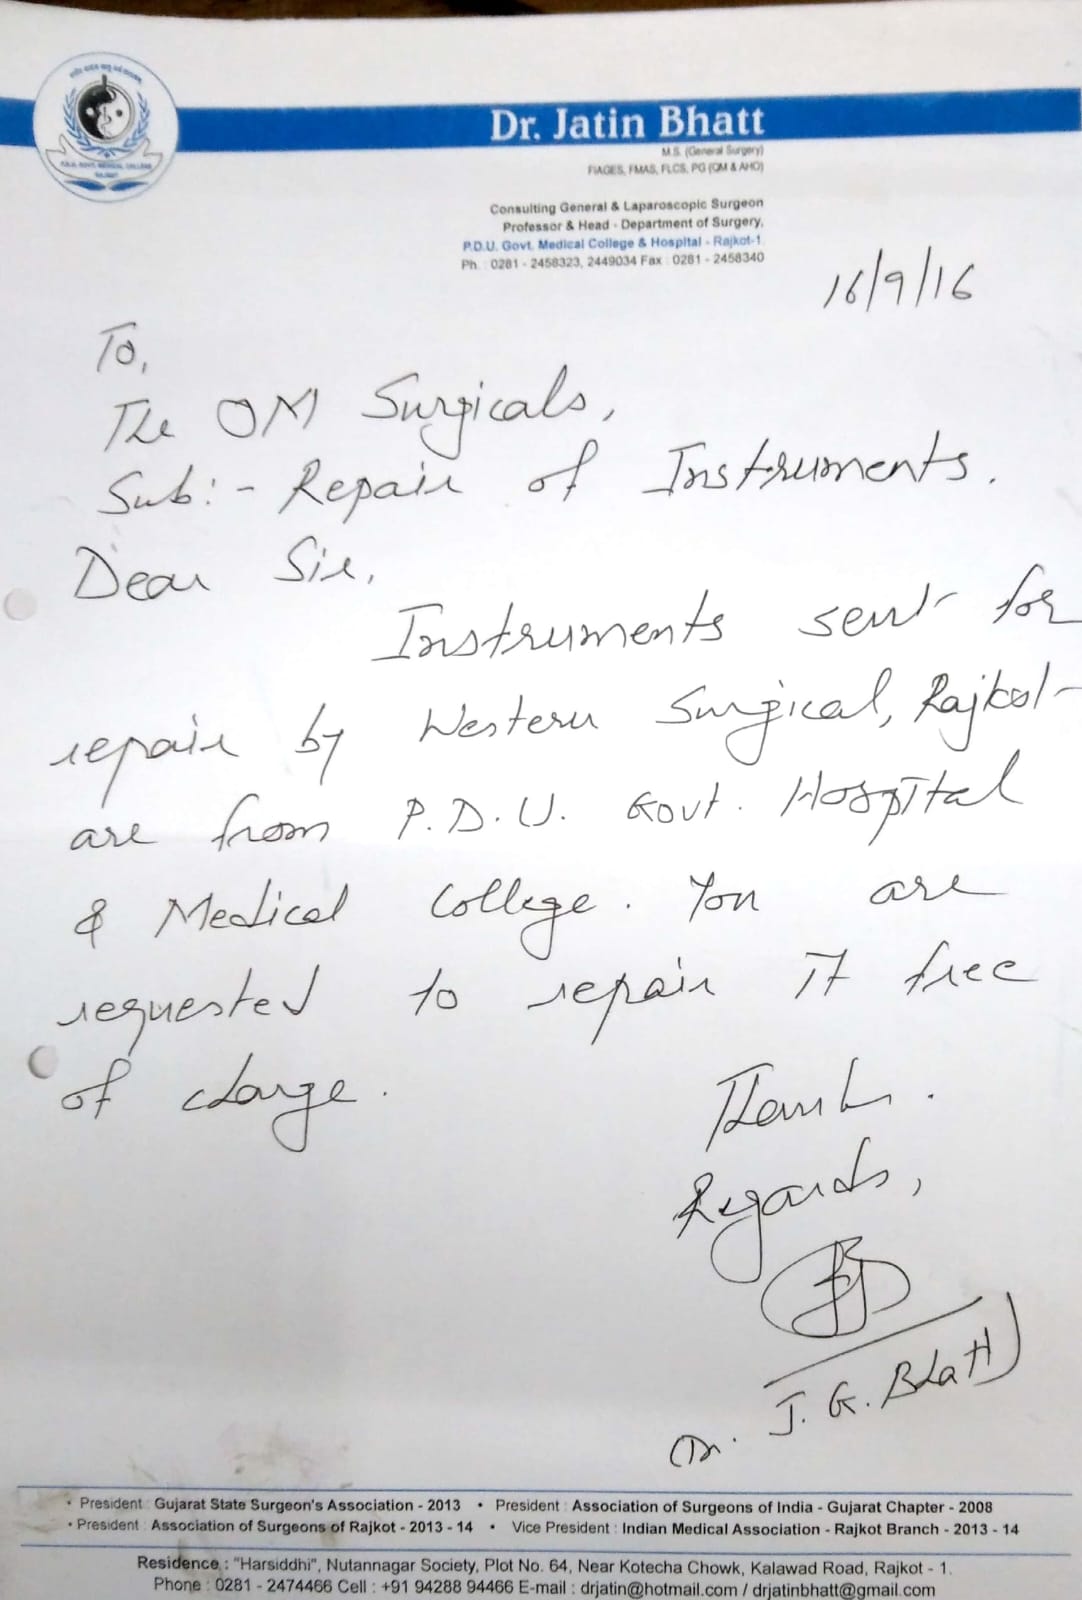 Dr. Jatin Bhatt
M.S. (General Surgery)
FIAGES, FMAS, FLCS, PG (QM & AHO)
Consulting General & Laparoscopic Surgeon
Professor & Head - Department of Surgery,
P.D.U. Govt. Medical College & Hospital - Rajkot-1.
Ph. : 0281 - 2458323, 2449034 Fax : 0281 - 2458340
16/9/16
To,
The OM Surgicals,
Sub:- Repair of Instruments.
Dear Sir,
Instruments sent for
repair by Western Surgical, Rajkot
are from P.D.U. Govt. Hospital
& Medical College. You are
requested to repair it free
of charge.
Thanks.
Regards,
(Dr. J. G. Bhatt)
• President : Gujarat State Surgeon's Association - 2013 • President : Association of Surgeons of India - Gujarat Chapter - 2008
• President : Association of Surgeons of Rajkot - 2013 - 14 • Vice President : Indian Medical Association - Rajkot Branch - 2013 - 14
Residence : "Harsiddhi", Nutannagar Society, Plot No. 64, Near Kotecha Chowk, Kalawad Road, Rajkot - 1.
Phone : 0281 - 2474466 Cell : +91 94288 94466 E-mail : drjatin@hotmail.com / drjatinbhatt@gmail.com